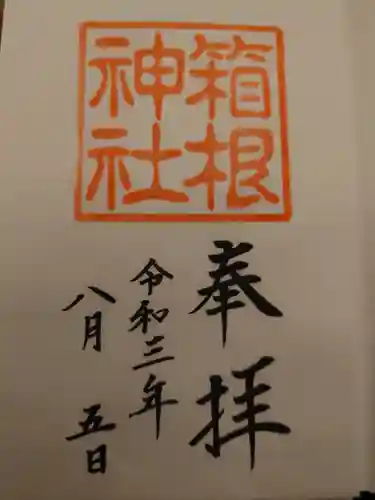 箱根
神社
奉拝
令和三年
八月五日